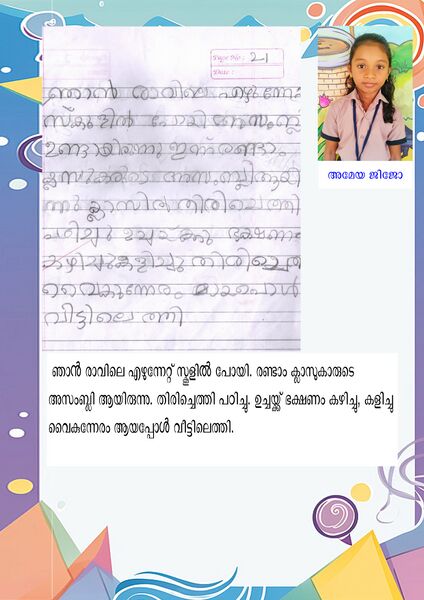 Page No: 21
Date:
ഞാൻ രാവിലെ എഴുന്നേ
സ്കൂളിൽ പോയി അസംബ്ലി
ഉണ്ടായിരുന്നു ഇന്ന് രണ്ടാം
ക്ലാസുകാരുടെ അസംബ്ലി ആയി
രുന്നു ക്ലാസിൽ തിരിച്ചെത്തി
പഠിച്ചു ഉച്ചയ്ക്കു ഭക്ഷണം
കഴിച്ചു കളിച്ചു തിരിച്ചെത
വൈകുന്നേരം
വീട്ടിലെത്തി
അമേയ ജിജോ
ഞാൻ രാവിലെ എഴുന്നേറ്റ് സ്കൂളിൽ പോയി. രണ്ടാം ക്ലാസുകാരുടെ
അസംബ്ലി ആയിരുന്നു. തിരിച്ചെത്തി പഠിച്ചു. ഉച്ചയ്ക്ക് ഭക്ഷണം കഴിച്ചു, കളിച്ചു
വൈകുന്നേരം ആയപ്പോൾ വീട്ടിലെത്തി.